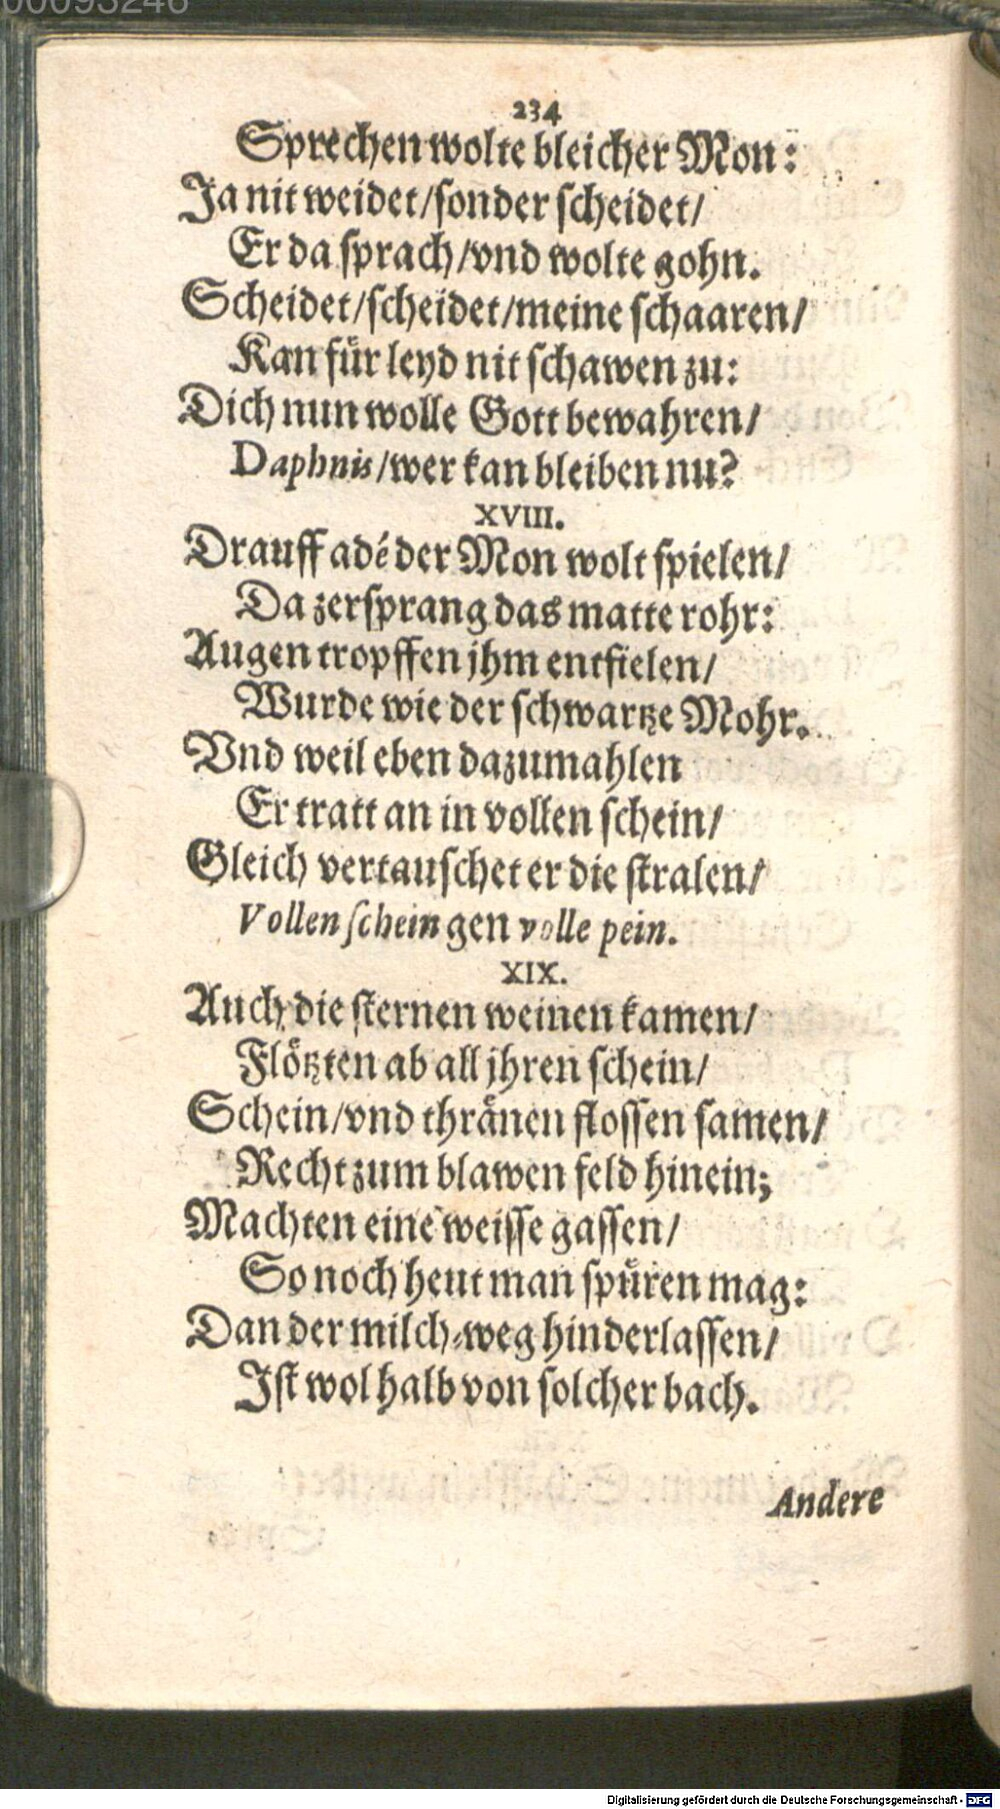 00093246
234
Sprechen wolte bleicher Mon:
Ja nit weidet/sonder scheidet/
Er da sprach/vnd wolte gohn.
Scheidet/scheidet/meine schaaren/
Kan für leyd nit schawen zu:
Dich nun wolle Gott bewahren/
Daphnis/wer kan bleiben nu?
XVIII.
Drauff adé der Mon wolt spielen/
Da zersprang das matte rohr:
Augen tropffen jhm entfielen/
Wurde wie der schwartze Mohr.
Vnd weil eben dazumahlen
Er tratt an in vollen schein/
Gleich vertauschet er die stralen/
Vollen schein gen volle pein.
XIX.
Auch die sternen weinen kamen/
Flötzten ab all jhren schein/
Schein/vnd thränen flossen samen/
Recht zum blawen feld hinein;
Machten eine weisse gassen/
So noch heut man spüren mag:
Dan der milch-weg hinderlassen/
Ist wol halb von solcher bach.
Andere
Digitalisierung gefördert durch die Deutsche Forschungsgemeinschaft - DFG